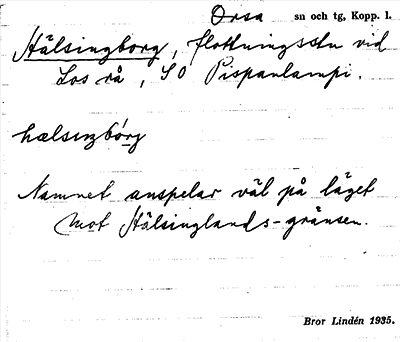 Orsa sn och tg, Kopp. l.
Hälsingborg, flottningsstn vid
Los rå, SO Pispanlampi.
hælsıŋbórg
Namnet anspelar väl på läget
mot Hälsinglands-gränsen.
Bror Lindén 1935.